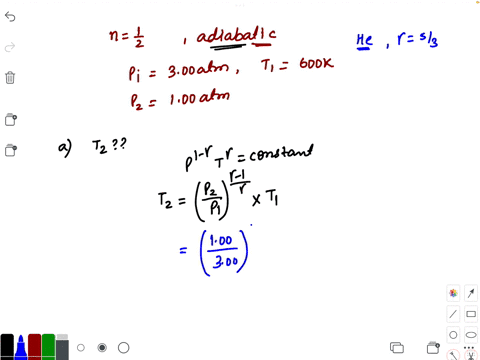 n = 1/2 , adiabatic
He , r = 5/3
Pi = 3.00 atm , T1 = 600K
P2 = 1.00 atm
a) T2 ??
P^(1-r) T^r = constant
T2 = (P2/P1)^((r-1)/r) × T1
= (1.00/3.00)